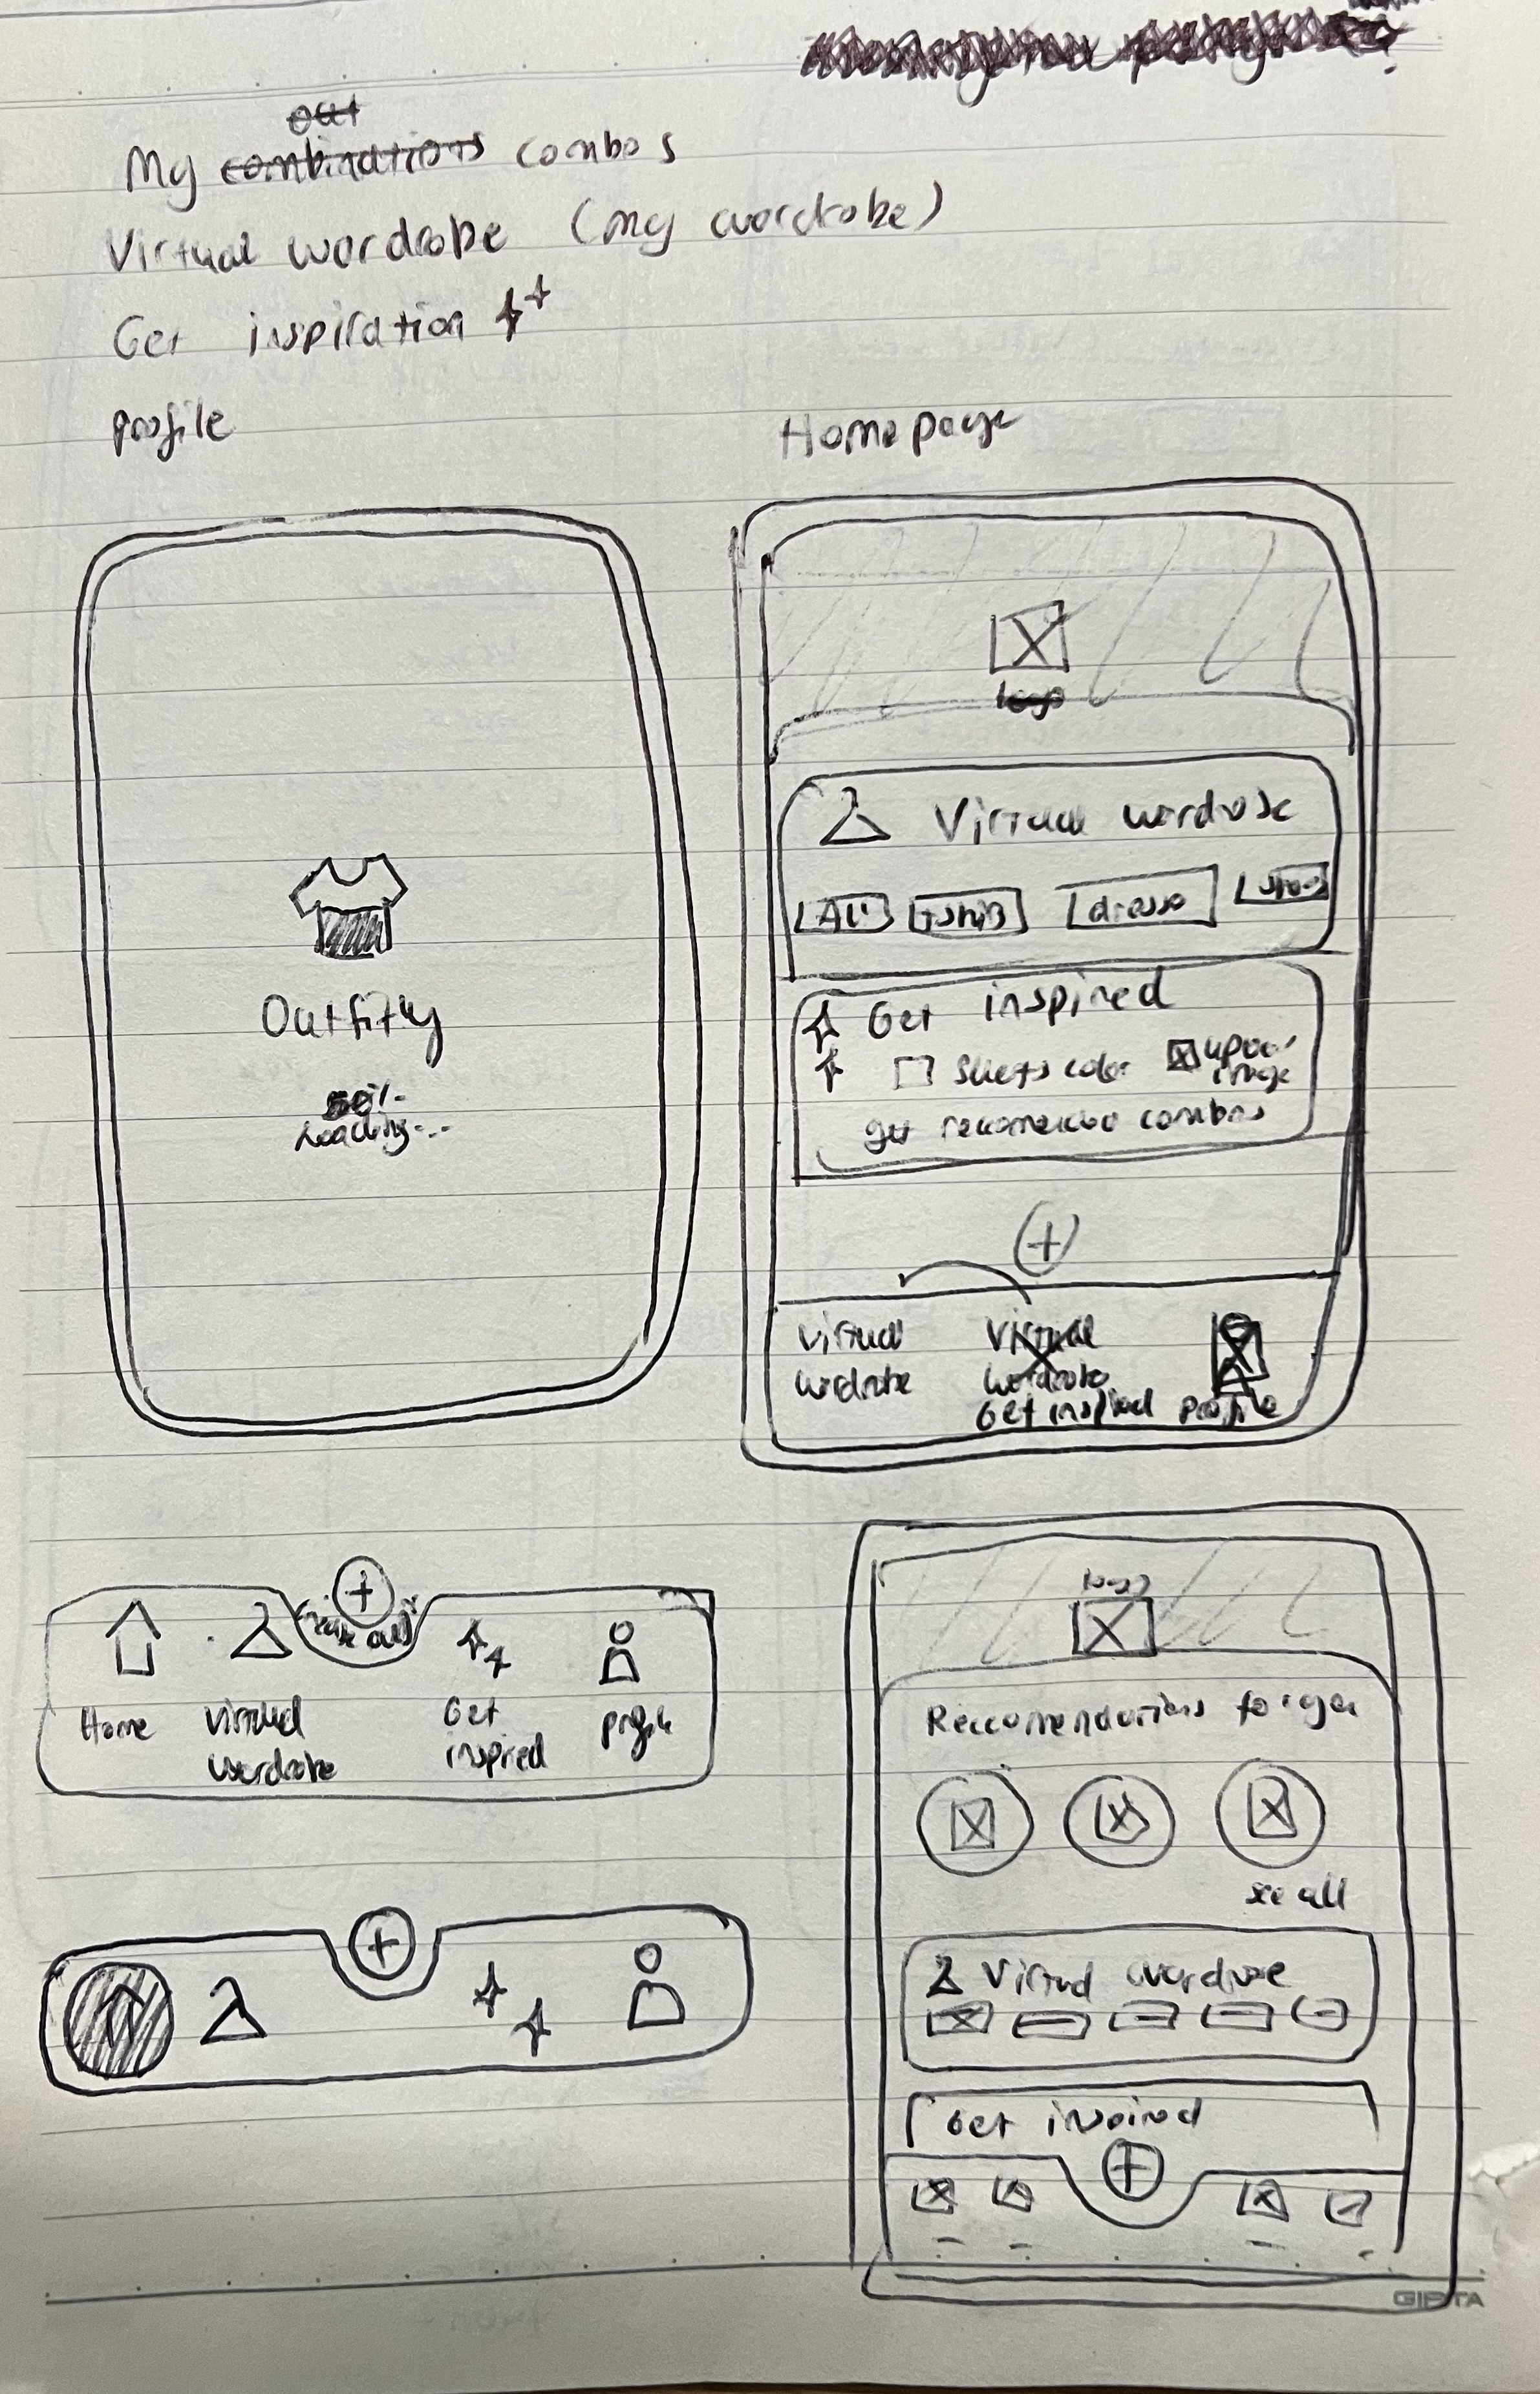 out
My combinations combos
Virtual wardrobe (my wardrobe)
Get inspiration
profile
Homepage
Outfitly
Loading...
logo
Virtual wardrobe
All
Tshirts
Get inspired
color
image
combos
virtual
wardrobe
Virtual
wardrobe
Get inspired
profile
Home
virtual
wardrobe
Get
inspired
profile
logo
Reccomendations for you
see all
Virtual wardrobe
Get inspired